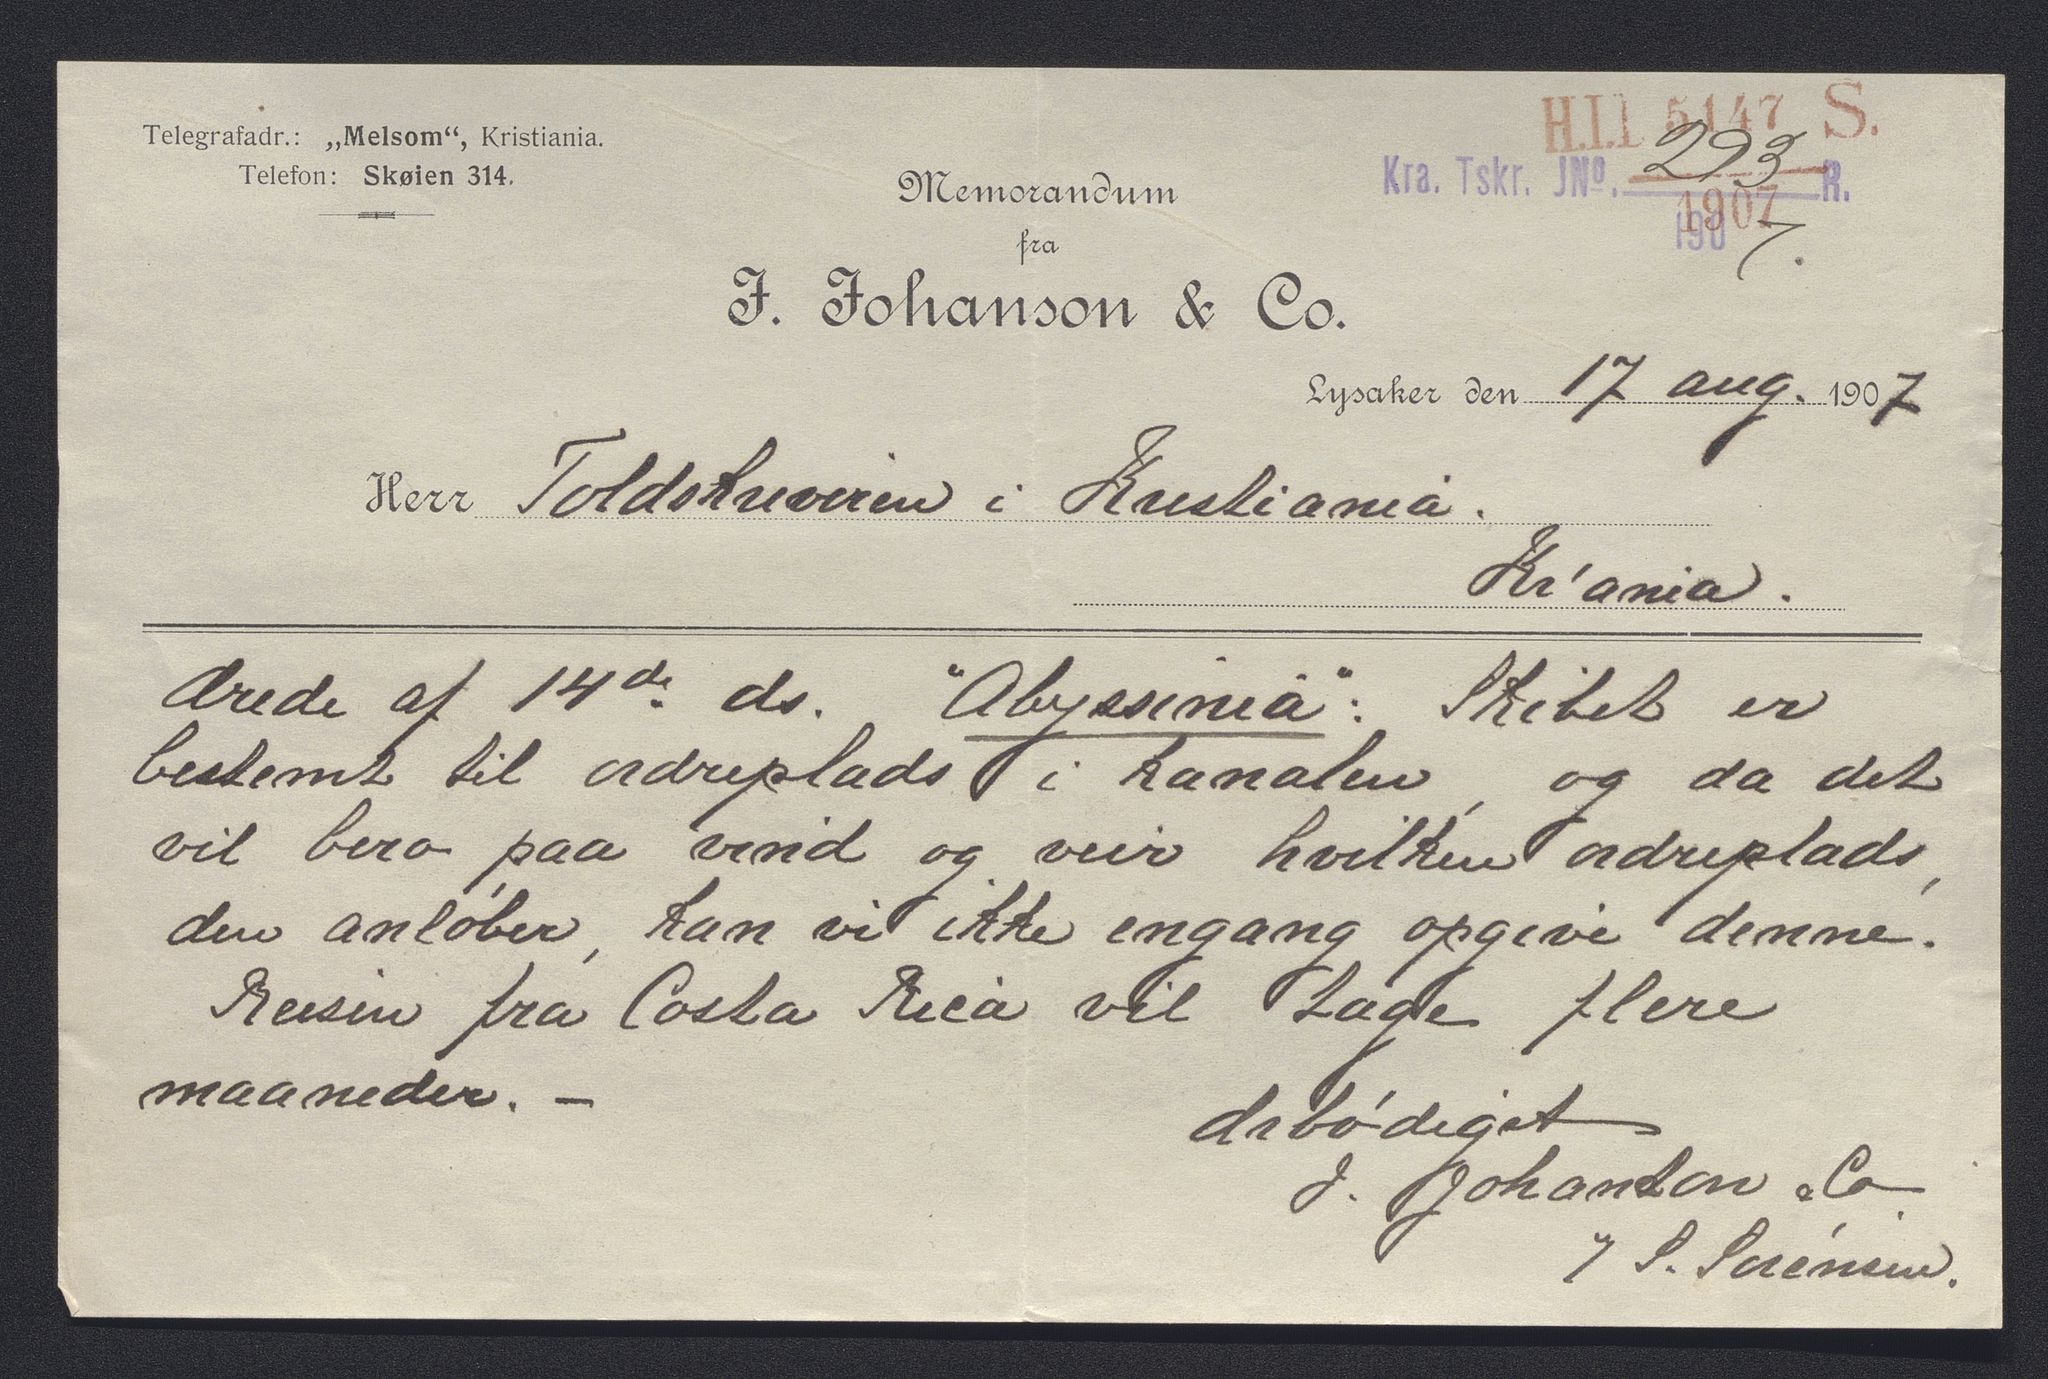 Telegrafadr.: „Melsom“, Kristiania.
Telefon: Skøien 314.
H.I.I 5147 S.
Kra. Tskr. JNo. 293 R.
1907
190 7.
Memorandum
fra
J. Johanson & Co.
Lysaker den 17 aug. 1907
Herr Toldskriveren i Kristiania.
Kr'ania.
Ærede af 14de ds. "Abyssinia": Skibet er
bestemt til ordreplads i kanalen, og da det
vil bero paa vind og veir hvilken ordreplads,
den anløber, kan vi ikke engang opgive denne.
Reisen fra Costa Rica vil tage flere
maaneder. —
Ærbødigst
J. Johanson & Co
S. Sørensen.